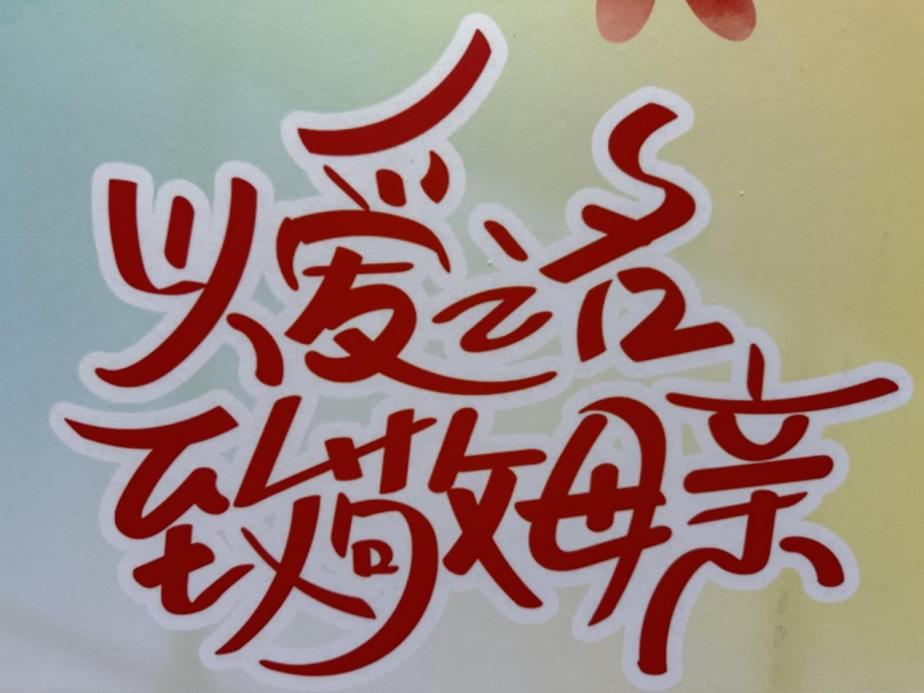 以爱之名
致敬母亲